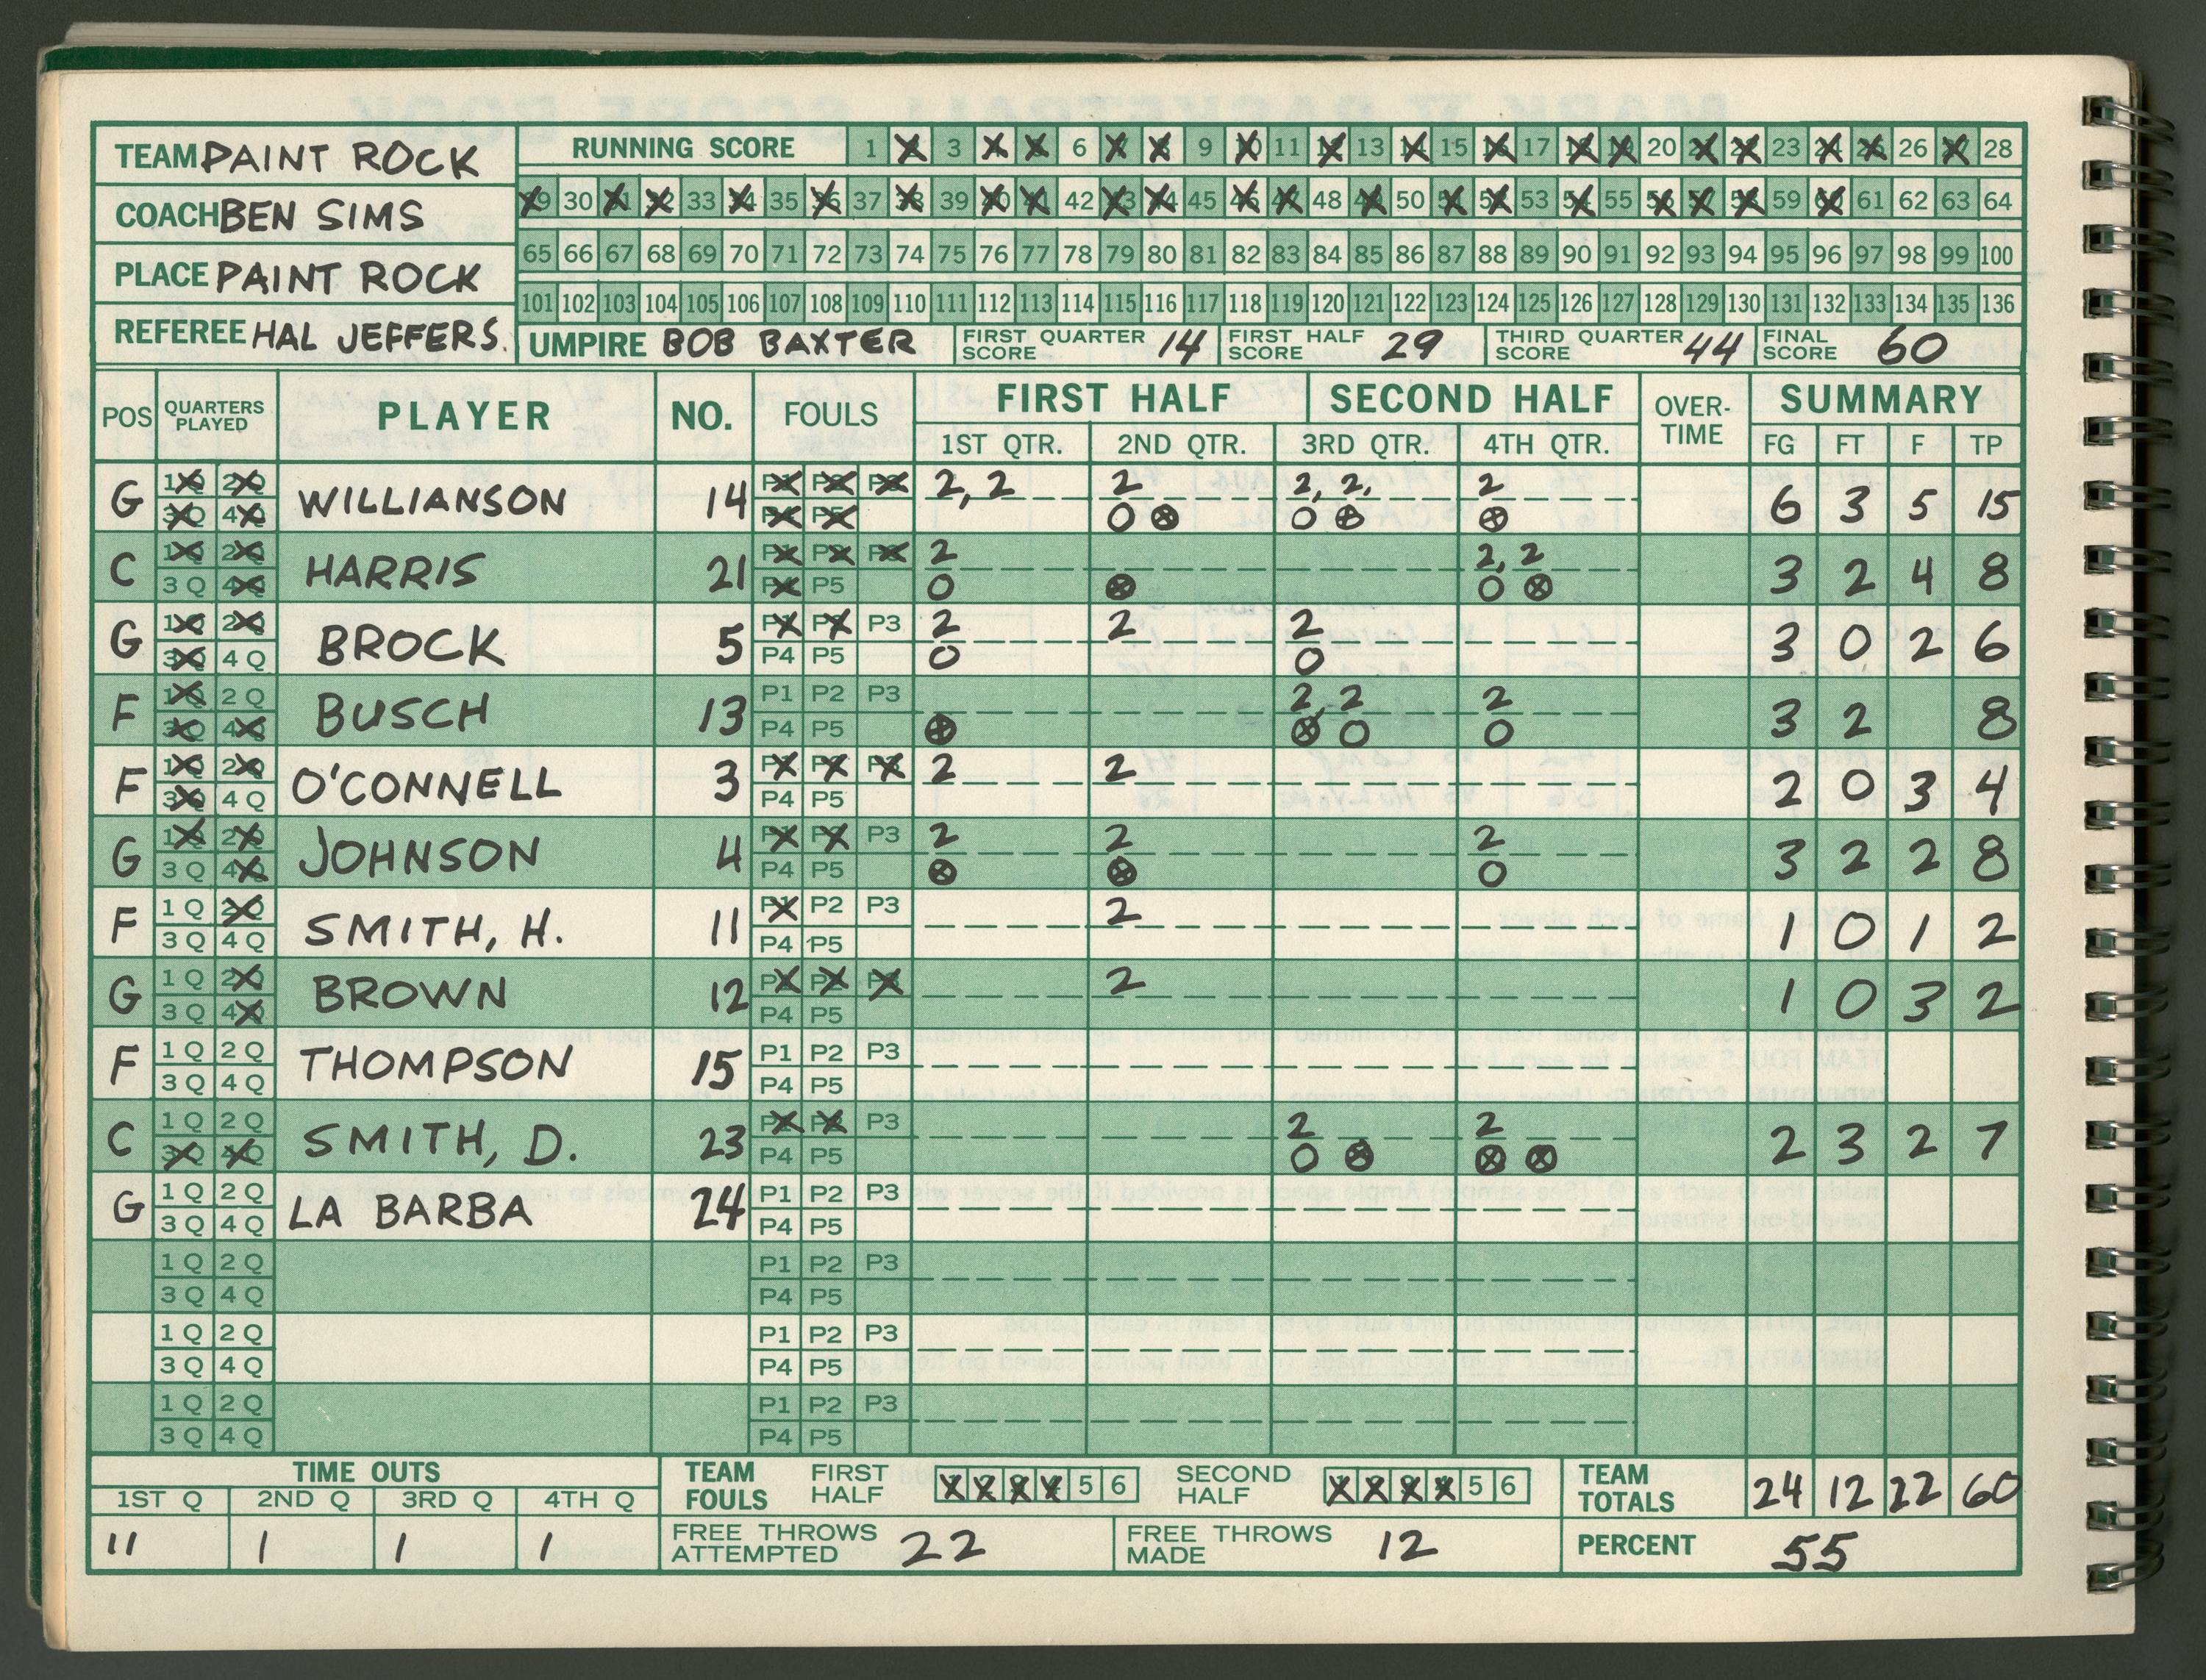 TEAM PAINT ROCK
COACH BEN SIMS
PLACE PAINT ROCK
REFEREE HAL JEFFERS.
RUNNING SCORE 1 2 3 4 5 6 7 8 9 10 11 12 13 14 15 16 17 18 19 20 21 22 23 24 25 26 27 28
29 30 31 32 33 34 35 36 37 38 39 40 41 42 43 44 45 46 47 48 49 50 51 52 53 54 55 56 57 58 59 60 61 62 63 64
65 66 67 68 69 70 71 72 73 74 75 76 77 78 79 80 81 82 83 84 85 86 87 88 89 90 91 92 93 94 95 96 97 98 99 100
101 102 103 104 105 106 107 108 109 110 111 112 113 114 115 116 117 118 119 120 121 122 123 124 125 126 127 128 129 130 131 132 133 134 135 136
UMPIRE BOB BAXTER FIRST QUARTER SCORE 14 FIRST HALF SCORE 29 THIRD QUARTER SCORE 44 FINAL SCORE 60
POS QUARTERS PLAYED PLAYER NO. FOULS FIRST HALF SECOND HALF OVER-TIME SUMMARY
1ST QTR. 2ND QTR. 3RD QTR. 4TH QTR. FG FT F TP
G 1Q 2Q WILLIANSON 14 P1 P2 P3 2, 2 2 2, 2, 2 6 3 5 15
3Q 4Q P4 P5 O ⊗ O ⊗ ⊗
C 1Q 2Q HARRIS 21 P1 P2 P3 2 2, 2 3 2 4 8
3Q 4Q P4 P5 O ⊗ O ⊗
G 1Q 2Q BROCK 5 P1 P2 P3 2 2 2 3 0 2 6
3Q 4Q P4 P5 O O
F 1Q 2Q BUSCH 13 P1 P2 P3 2, 2 2 3 2 8
3Q 4Q P4 P5 ⊗ ⊗ O O
F 1Q 2Q O'CONNELL 3 P1 P2 P3 2 2 2 0 3 4
3Q 4Q P4 P5
G 1Q 2Q JOHNSON 4 P1 P2 P3 2 2 2 3 2 2 8
3Q 4Q P4 P5 ⊗ ⊗ O
F 1Q 2Q SMITH, H. 11 P1 P2 P3 2 1 0 1 2
3Q 4Q P4 P5
G 1Q 2Q BROWN 12 P1 P2 P3 2 1 0 3 2
3Q 4Q P4 P5
F 1Q 2Q THOMPSON 15 P1 P2 P3
3Q 4Q P4 P5
C 1Q 2Q SMITH, D. 23 P1 P2 P3 2 2 2 3 2 7
3Q 4Q P4 P5 O ⊗ ⊗ ⊗
G 1Q 2Q LA BARBA 24 P1 P2 P3
3Q 4Q P4 P5
1Q 2Q P1 P2 P3
3Q 4Q P4 P5
1Q 2Q P1 P2 P3
3Q 4Q P4 P5
1Q 2Q P1 P2 P3
3Q 4Q P4 P5
TIME OUTS TEAM FOULS FIRST HALF 1 2 3 4 5 6 SECOND HALF 1 2 3 4 5 6 TEAM TOTALS 24 12 22 60
1ST Q 2ND Q 3RD Q 4TH Q
11 1 1 1 FREE THROWS ATTEMPTED 22 FREE THROWS MADE 12 PERCENT 55